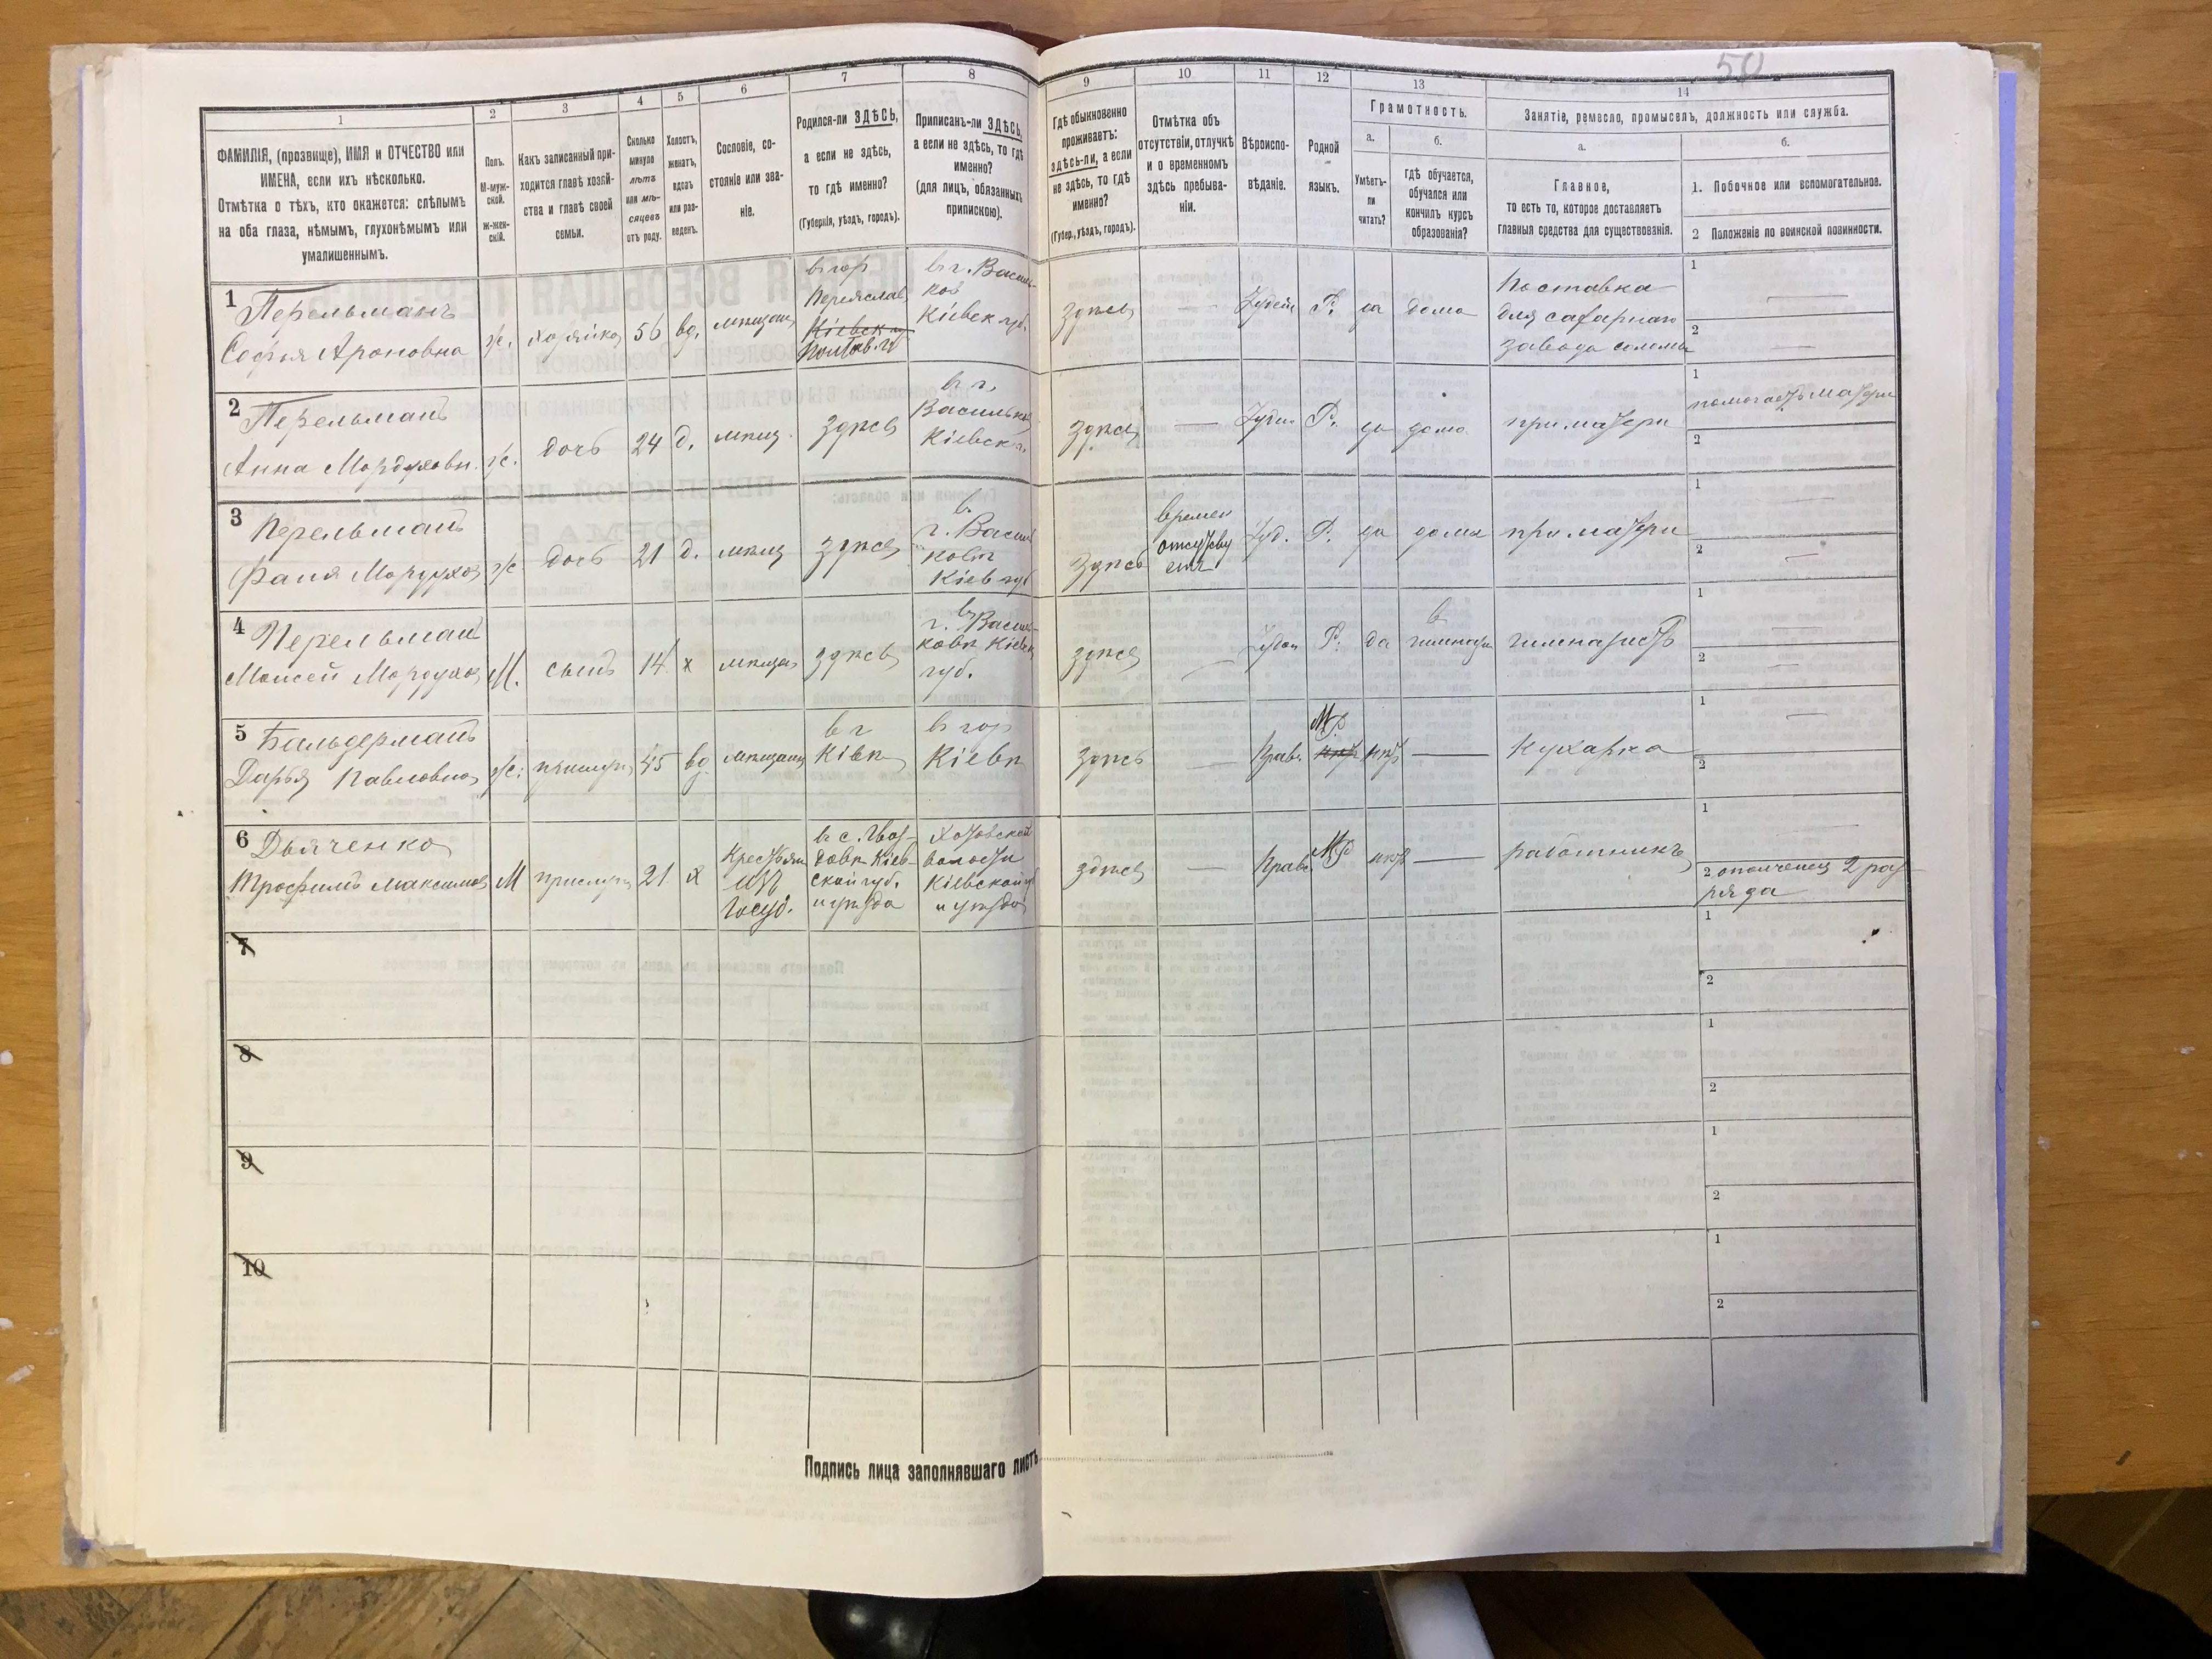 50
1
2
3
4
5
6
7
8
9
10
11
12
13
14
ФАМИЛІЯ, (прозвище), ИМЯ и ОТЧЕСТВО или
ИМЕНА, если ихъ нѣсколько.
Отмѣтка о тѣхъ, кто окажется: слѣпымъ
на оба глаза, нѣмымъ, глухонѣмымъ или
умалишеннымъ.
Полъ.
М-муж-
ской.
Ж-жен-
скій.
Какъ записанный при-
ходится главѣ хозяй-
ства и главѣ своей
семьи.
Сколько
минуло
лѣтъ
или мѣ-
сяцевъ
отъ роду.
Холостъ,
женатъ,
вдовъ
или раз-
веденъ.
Сословіе, со-
стояніе или зва-
ніе.
Родился-ли ЗДѢСЬ,
а если не здѣсь,
то гдѣ именно?
(Губернія, уѣздъ, городъ).
Приписанъ-ли ЗДѢСЬ,
а если не здѣсь, то гдѣ
именно?
(для лицъ, обязанныхъ
припискою).
Гдѣ обыкновенно
проживаетъ:
здѣсь-ли, а если
не здѣсь, то гдѣ
именно?
(Губер., уѣздъ, городъ).
Отмѣтка объ
отсутствіи, отлучкѣ
и о временномъ
здѣсь пребыва-
ніи.
Вѣроиспо-
вѣданіе.
Родной
языкъ.
Грамотность.
а.
Умѣетъ-
ли
читать?
б.
гдѣ обучается,
обучался или
кончилъ курсъ
образованія?
Занятіе, ремесло, промыселъ, должность или служба.
а.
Главное,
то есть то, которое доставляетъ
главныя средства для существованія.
б.
1. Побочное или вспомогательное.
2 Положеніе по воинской повинности.
1
Перельманъ
Софья Ароновна
ж.
хозяйка
56
вд.
мѣщан
въ гор
Переяслав
Кіевск губ
Полтав. г
въ г. Василь-
ков
Кіевск губ.
здѣсь
—
Іудей
Р.
да
дома
Поставка
для сахарнаго
завода соломы
1
2
2
Перельманъ
Анна Мордуховн.
ж.
дочь
24
д.
мѣщ.
здѣсь
въ г.
Васильков
Кіевск г.
здѣсь
—
Іудей
Р.
да
дома
при матери
1
помогаетъ матери
2
3
Перельманъ
Фаня Мордухов
ж
дочь
21
д.
мѣщ
здѣсь
в.
г. Василь
ковѣ
Кіев губ
здѣсь
времен
отсутству
етъ
Іуд.
Р.
да
дома
при матери
1
2
4
Перельман
Моисей Мордухов
М.
сынъ
14
х
мѣщан
здѣсь
въ
г. Василь-
ковѣ Кіевск
губ.
здѣсь
—
Іудей
Р.
да
в
гимназіи
гимназистъ
1
2
5
Бальдерманъ
Дарья Павловна
ж.
прислуга
45
вд.
мѣщан
в г
Кіевѣ
въ гор
Кіевѣ
здѣсь
—
Прав.
М.Р.
нѣт
нѣт
—
Кухарка
1
2
6
Дьяченко
Трофимъ Максимов
М
прислуга
21
х
Крестьян
изъ
Госуд.
в с. Гвоз-
довѣ Кіев-
ской губ.
и уѣзда
Хотовской
волости
Кіевской г
и уѣзда
здѣсь
—
Прав.
М.Р
нѣт
—
работникъ
1
2 ополченец 2 раз-
ряда
7
1
2
8
1
2
9
1
2
10
1
2
Подпись лица заполнявшаго листъ